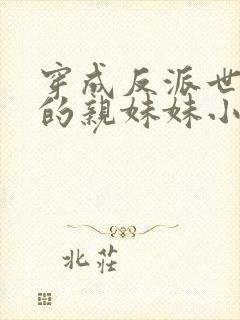 穿成反派世
的親妹妹小
北莊